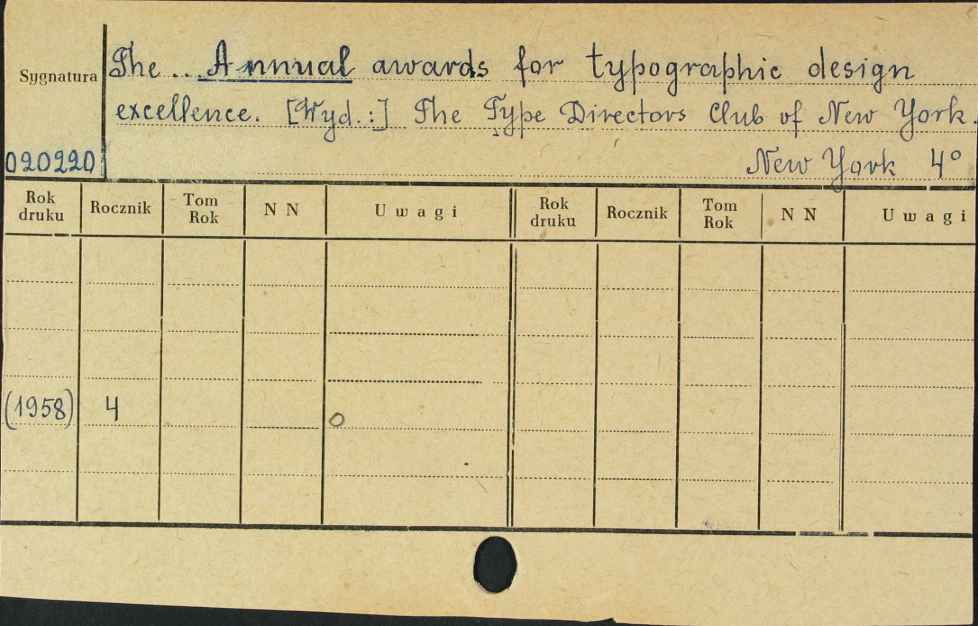 Sygnatura The ... Annual awards for typographic design
excellence. [Wyd.:] The Type Directors Club of New York.
020220 New York 4°
Rok druku Rocznik Tom Rok N N Uwagi Rok druku Rocznik Tom Rok N N Uwagi
(1958) 4 o